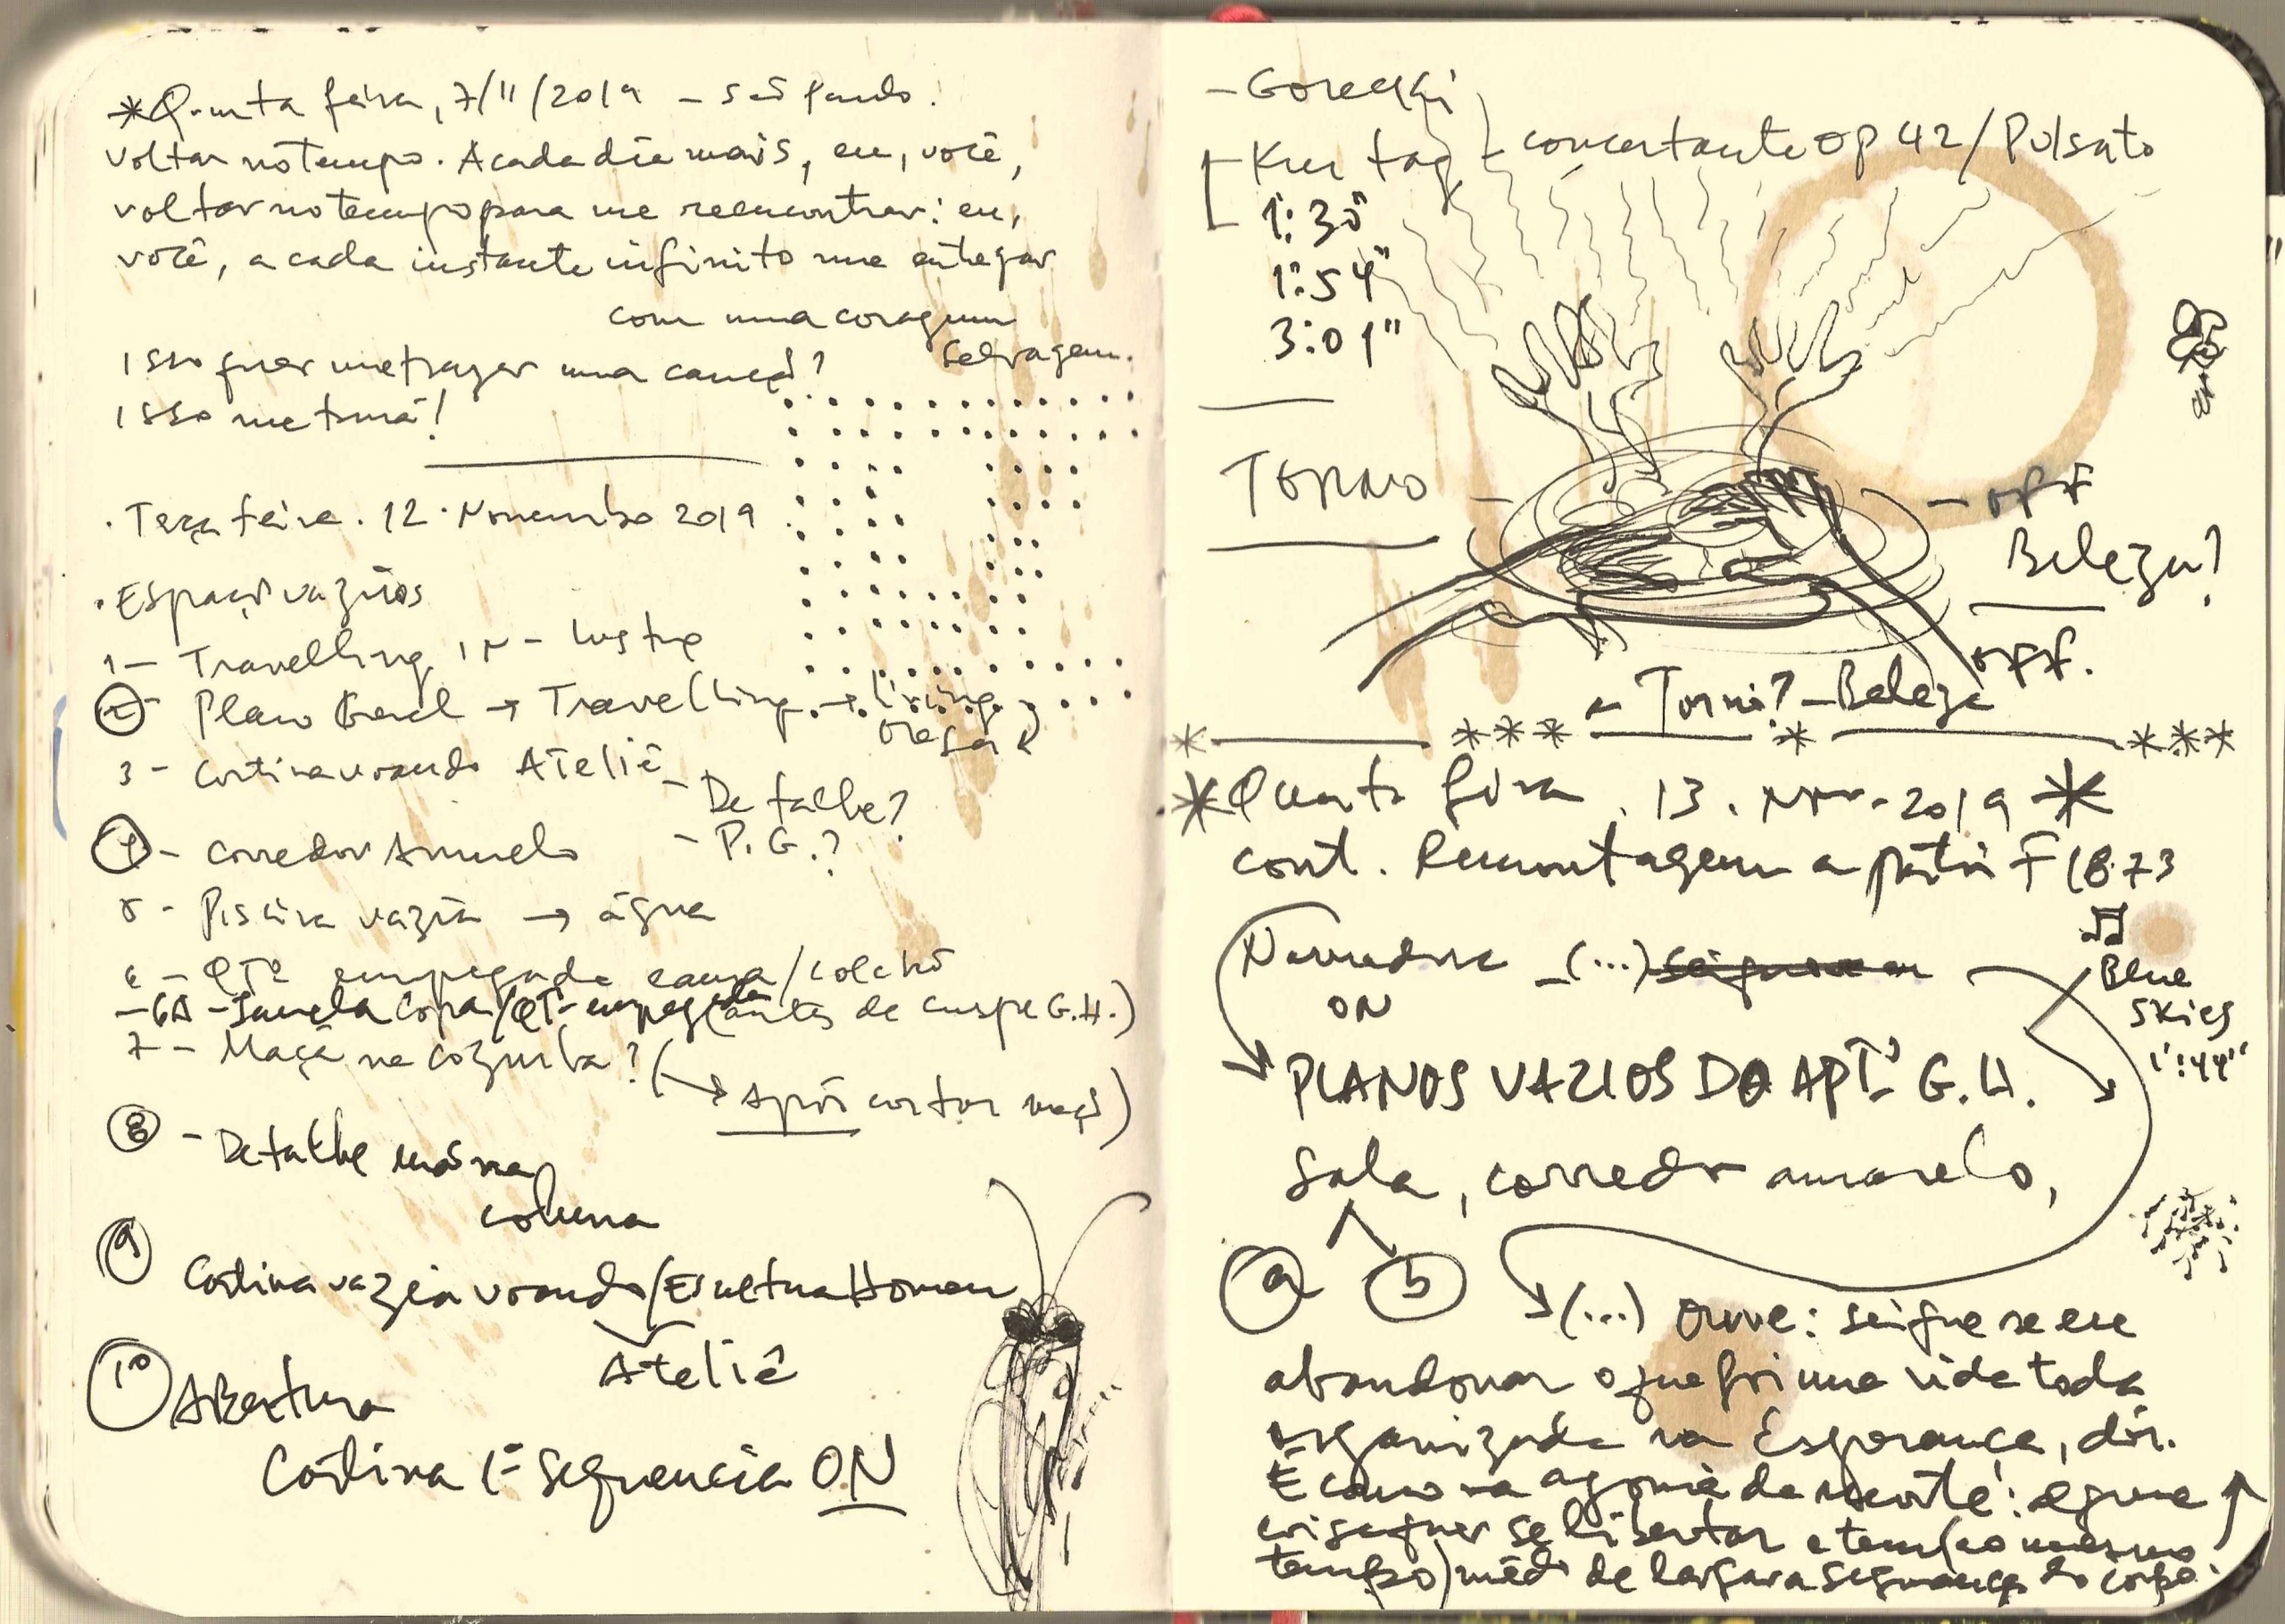 *Quinta feira, 7/11/2019 - São Paulo.
voltar no tempo. A cada dia mais, eu, você,
voltar no tempo para me reencontrar: eu,
você, a cada instante infinito me entregar
com uma coragem
selvagem.
Isso quer me trazer uma canção?
Isso me torna!
. Terça feira . 12 . Novembro 2019
. Espaços vazios
1- Travelling IN - lustre
2- Plano Geral → Travelling → living
3- Cortina voando Ateliê
- Detalhe?
- P.G.?
4- Corredor Amarelo
5- Piscina vazia → água
6- QTº empregada cama/colchão
-6A - Janela Copa/QTº empregada (antes de cuspe G.H.)
7- Maçã na cozinha? (→ após cortar maçã)
8 - Detalhe mão na
coluna
9 Cortina vazia voando/Escultura Homem
Ateliê
10 Abertura
Cortina 1ª Sequencia ON
- Gorecki
- Kurtag - concertante op 42/Pulsato
1':30"
1':54"
3:01"
TORNO - OFF
Beleza?
OFF.
← Torno? - Beleza
* *** * ***
*Quarta feira . 13 . Nov. 2019 *
cont. Remontagem a partir F 1873
Narradora - (...) sei que
ON
♫
Blue
Skies
1':44"
PLANOS VAZIOS DO APTº G.H.
Sala, corredor amarelo,
a b
(...) Ouve: sei que se eu
abandonar o que foi uma vida toda
organizada na Esperança, dói.
É como na agonia da morte: algume
conseguir se libertar e tem(ao mesmo
tempo) medo de largar a segurança do corpo.